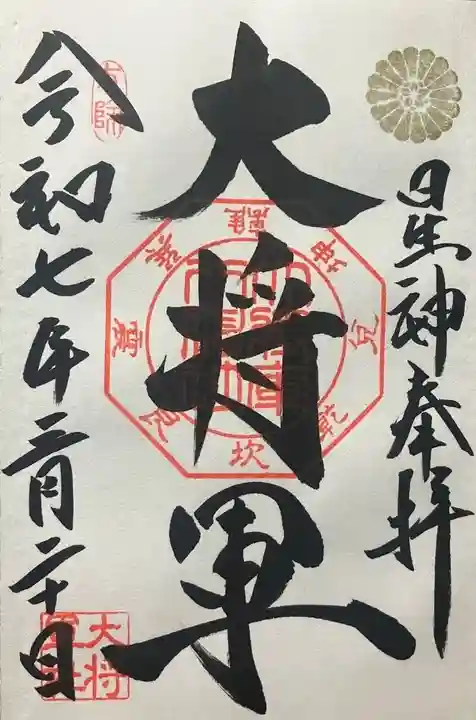 星神奉拝
大将軍
離
坤
兌
乾
坎
艮
震
巽
令和七年三月二十日
大将
軍社